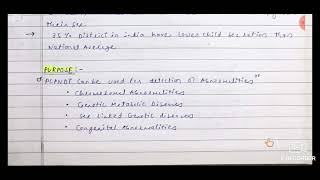 their Sex
→ 35% District in india have Lower child sex ration than
National Average
PURPOSE :-
PCANDT Can be used for detection of Abnormalities"
• Chromosomal Abnormalities
• Genetic Metabolic Diseases
• Sex linked Genetic diseases
• Congenital Abnormalities